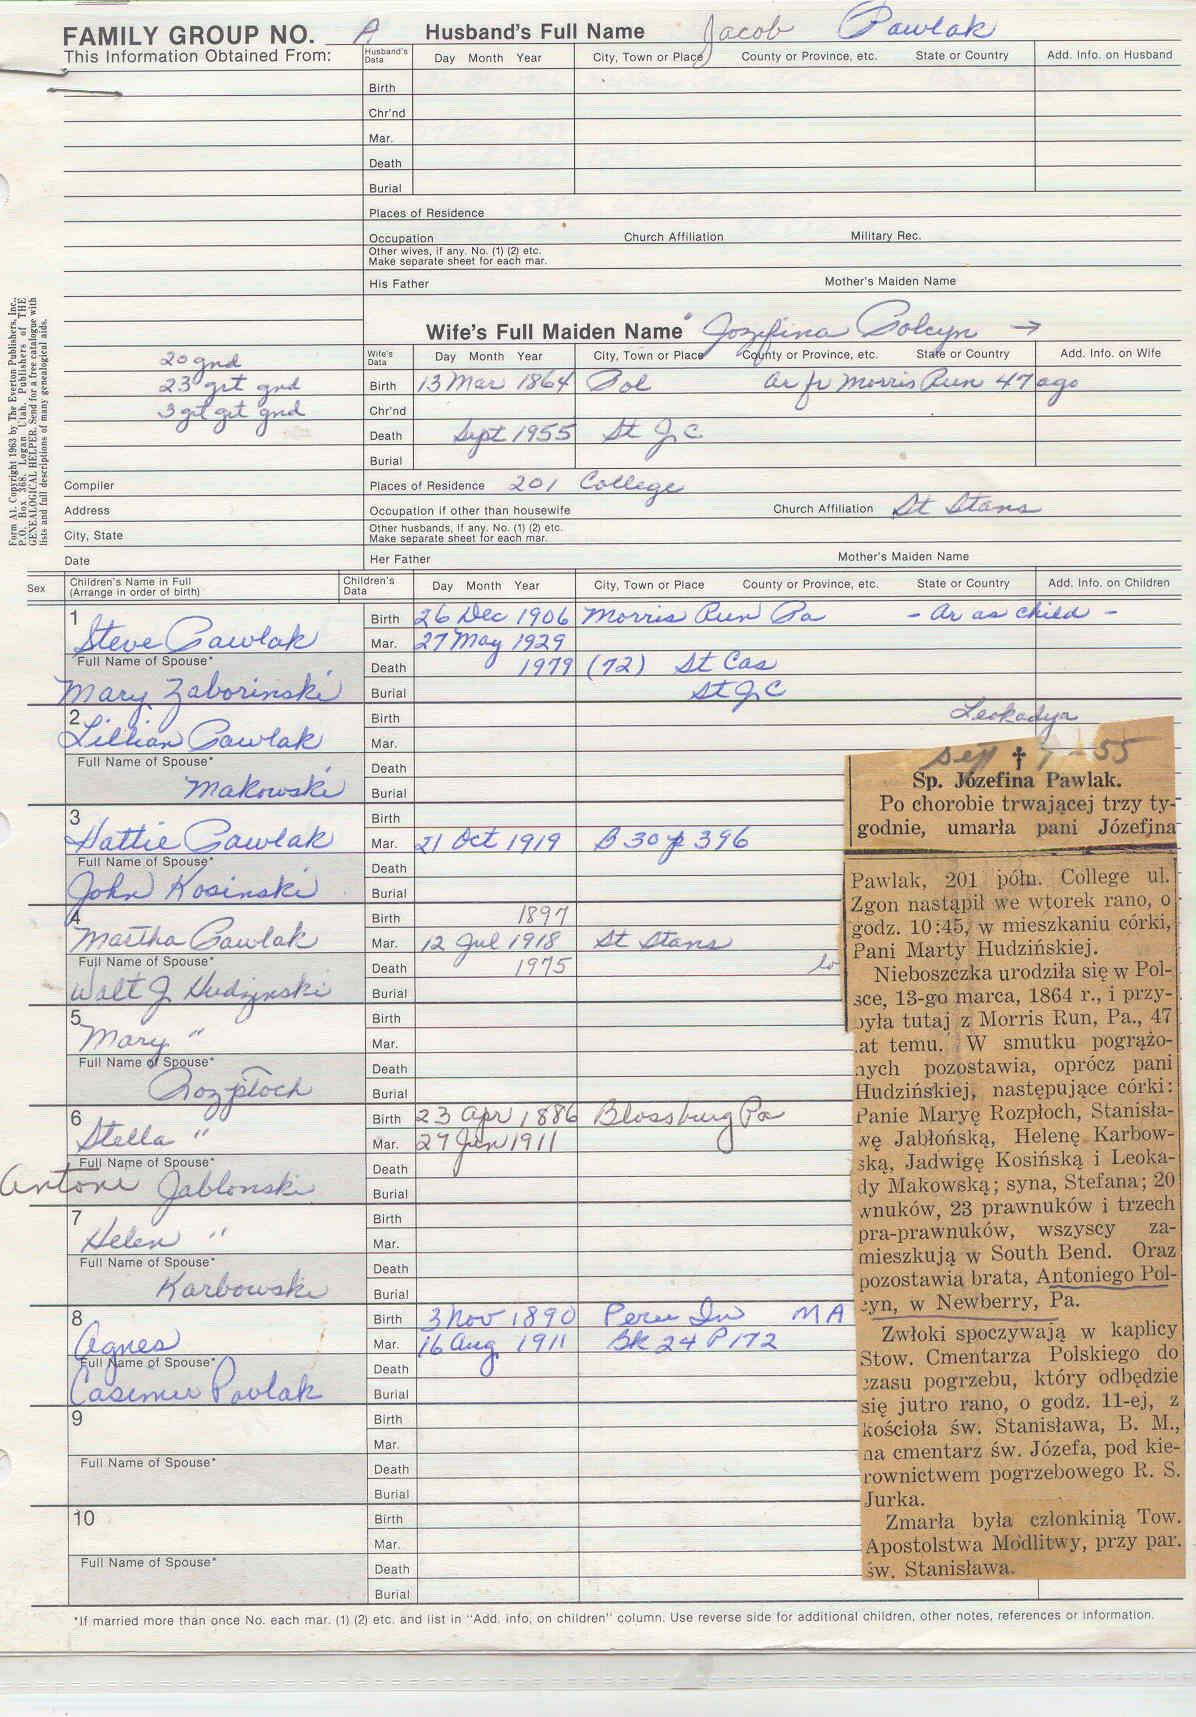 FAMILY GROUP NO. A Husband's Full Name Jacob Pawlak
This Information Obtained From:
Husband's Data Day Month Year City, Town or Place County or Province, etc. State or Country Add. Info. on Husband
Birth
Chr'nd
Mar.
Death
Burial
Places of Residence
Occupation Church Affiliation Military Rec.
Other wives, if any. No. (1) (2) etc.
Make separate sheet for each mar.
His Father Mother's Maiden Name
Wife's Full Maiden Name Jozefina Polcyn →
20 gnd
23 grt gnd
3 grt grt gnd
Wife's Data Day Month Year City, Town or Place County or Province, etc. State or Country Add. Info. on Wife
Birth 13 Mar 1864 Pol ar fr Morris Run 47 ago
Chr'nd
Death Sept 1955 St J C
Burial
Compiler Places of Residence 201 College
Address Occupation if other than housewife Church Affiliation St Stans
City, State Other husbands, if any. No. (1) (2) etc.
Make separate sheet for each mar.
Date Her Father Mother's Maiden Name
Form A1. Copyright 1963 by The Everton Publishers, Inc.,
P.O. Box 368, Logan Utah. Publishers of THE
GENEALOGICAL HELPER. Send for a free catalogue with
lists and full descriptions of many genealogical aids.
Sex Children's Name in Full
(Arrange in order of birth) Children's Data Day Month Year City, Town or Place County or Province, etc. State or Country Add. Info. on Children
1 Birth 26 Dec 1906 Morris Run Pa - Ar as child -
Steve Pawlak Mar. 27 May 1929
Full Name of Spouse* Death 1979 (72) St Cas
Mary Zaborinski Burial St J C
2 Birth Leokadyn
Lillian Pawlak Mar.
Full Name of Spouse* Death
Makowski Burial
3 Birth
Hattie Pawlak Mar. 21 Oct 1919 B 30 p 396
Full Name of Spouse* Death
John Kosinski Burial
4 Birth 1897
Martha Pawlak Mar. 12 Jul 1918 St Stans
Full Name of Spouse* Death 1975
Walt J Hudzinski Burial
5 Birth
Mary " Mar.
Full Name of Spouse* Death
Rozpłoch Burial
6 Birth 23 Apr 1886 Blossburg Pa
Stella " Mar. 27 Jun 1911
Full Name of Spouse* Death
Antoni Jablonski Burial
7 Birth
Helen " Mar.
Full Name of Spouse* Death
Karbowski Burial
8 Birth 3 Nov 1890 Peru In M A
Agnes Mar. 16 Aug 1911 Bk 24 P 172
Full Name of Spouse* Death
Casimer Pavlak Burial
9 Birth
Mar.
Full Name of Spouse* Death
Burial
10 Birth
Mar.
Full Name of Spouse* Death
Burial
Sep 7-55
†
Sp. Józefina Pawlak.
Po chorobie trwającej trzy ty-
godnie, umarła pani Józefina
Pawlak, 201 półn. College ul.
Zgon nastąpił we wtorek rano, o
godz. 10:45, w mieszkaniu córki,
Pani Marty Hudzińskiej.
Nieboszczka urodziła się w Pol-
sce, 13-go marca, 1864 r., i przy-
była tutaj z Morris Run, Pa., 47
lat temu. W smutku pogrążo-
nych pozostawia, oprócz pani
Hudzińskiej, następujące córki:
Panie Maryę Rozpłoch, Stanisła-
wę Jabłońską, Helenę Karbow-
ską, Jadwigę Kosińską i Leoka-
dy Makowską; syna, Stefana; 20
wnuków, 23 prawnuków i trzech
pra-prawnuków, wszyscy za-
mieszkują w South Bend. Oraz
pozostawia brata, Antoniego Pol-
cyn, w Newberry, Pa.
Zwłoki spoczywają w kaplicy
Stow. Cmentarza Polskiego do
czasu pogrzebu, który odbędzie
się jutro rano, o godz. 11-ej, z
kościoła św. Stanisława, B. M.,
na cmentarz św. Józefa, pod kie-
rownictwem pogrzebowego R. S.
Jurka.
Zmarła była członkinią Tow.
Apostolstwa Modlitwy, przy par.
św. Stanisława.
*If married more than once No. each mar. (1) (2) etc. and list in "Add. info, on children" column. Use reverse side for additional children, other notes, references or information.